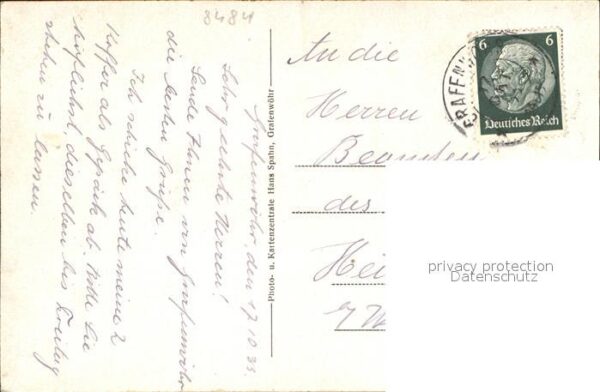 8484
Grafenwöhr, den 17.10.35.
Sehr geehrte Herren!
Sende Ihnen von Grafenwöhr
die besten Grüße.
Ich schicke heute meine 2
Koffer als Gepäck ab. Bitte Sie
höflichst, dieselben bis Freitag
stehen zu lassen.
Photo- u. Kartenzentrale Hans Spahn, Grafenwöhr
An die
Herren
Beamten
des
Hei
GRAFENW
6 6
Deutsches Reich
privacy protection
Datenschutz